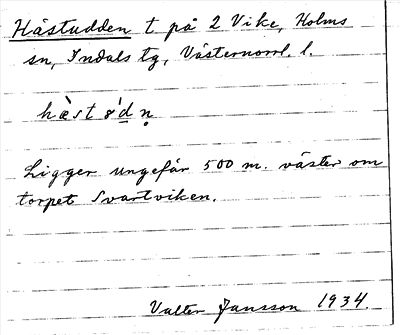 Hästudden t. på 2 Vike, Holms
sn, Indals tg, Västernorrl. l.
Ligger ungefär 500 m. väster om
torpet Svartviken.
Valter Jansson 1934.